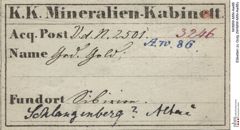 K.K. Mineralien-Kabinett
Acq. Post V.d.N. 2501. 3246
Name Ged. Gold. A.w. 86
Fundort Sibirien
Schlangenberg? Altai